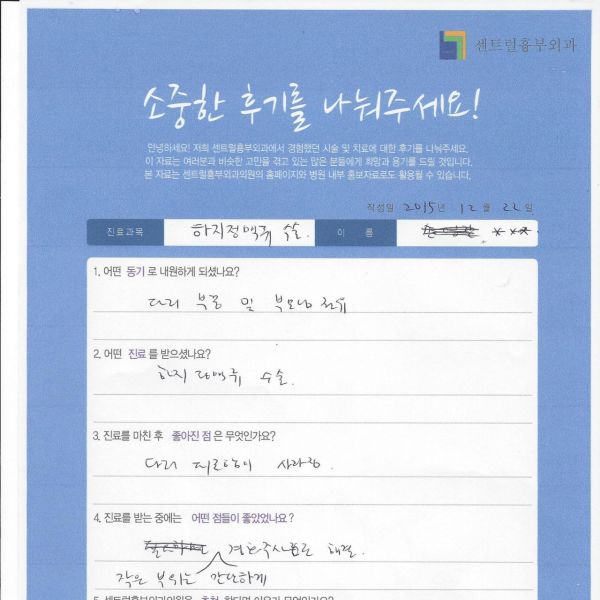 센트럴흉부외과
소중한 후기를 나눠주세요!
안녕하세요! 저희 센트럴흉부외과에서 경험했던 시술 및 치료에 대한 후기를 나눠주세요.
이 자료는 여러분과 비슷한 고민을 겪고 있는 많은 분들에게 희망과 용기를 드릴 것입니다.
본 자료는 센트럴흉부외과의원의 홈페이지와 병원 내부 홍보자료로도 활용될 수 있습니다.
작성일 2015년 12월 22일
진료과목 하지정맥류 수술. 이 름 * * *
1. 어떤 동기로 내원하게 되셨나요?
다리 부종 및 부모님 권유
2. 어떤 진료를 받으셨나요?
하지정맥류 수술.
3. 진료를 마친 후 좋아진 점은 무엇인가요?
다리 피로함이 사라짐.
4. 진료를 받는 중에는 어떤 점들이 좋았었나요?
경화주사로 해결.
작은 부위는 간단하게
5. 센트럴흉부외과의원을 추천 한다면 이유가 무엇인가요?